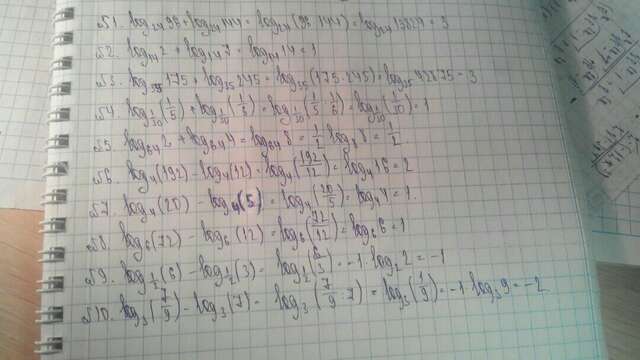 №1. log₂₄ 96 + log₂₄ 144 = log₂₄ (96·144) = log₂₄ 13824 = 3
№2. log₁₄ 2 + log₁₄ 7 = log₁₄ 14 = 1
№3. log₃₅ 175 + log₃₅ 245 = log₃₅ (175·245) = log₃₅ 42875 = 3
№4. log_{1/30} (1/5) + log_{1/30} (1/6) = log_{1/30} (1/5 · 1/6) = log_{1/30} (1/30) = 1
№5. log₆₄ 2 + log₆₄ 4 = log₆₄ 8 = 1/2 log₈ 8 = 1/2.
№6. log₄(192) - log₄(12) = log₄(192/12) = log₄ 16 = 2
№7. log₄(20) - log₄(5) = log₄(20/5) = log₄ 4 = 1.
№8. log₆(72) - log₆(12) = log₆(72/12) = log₆ 6 = 1
№9. log_{1/2}(6) - log_{1/2}(3) = log_{1/2}(6/3) = -1·log₂ 2 = -1
№10. log₃(7/9) - log₃(7) = log₃(7/9 : 7) = log₃(1/9) = -1·log₃ 9 = -2